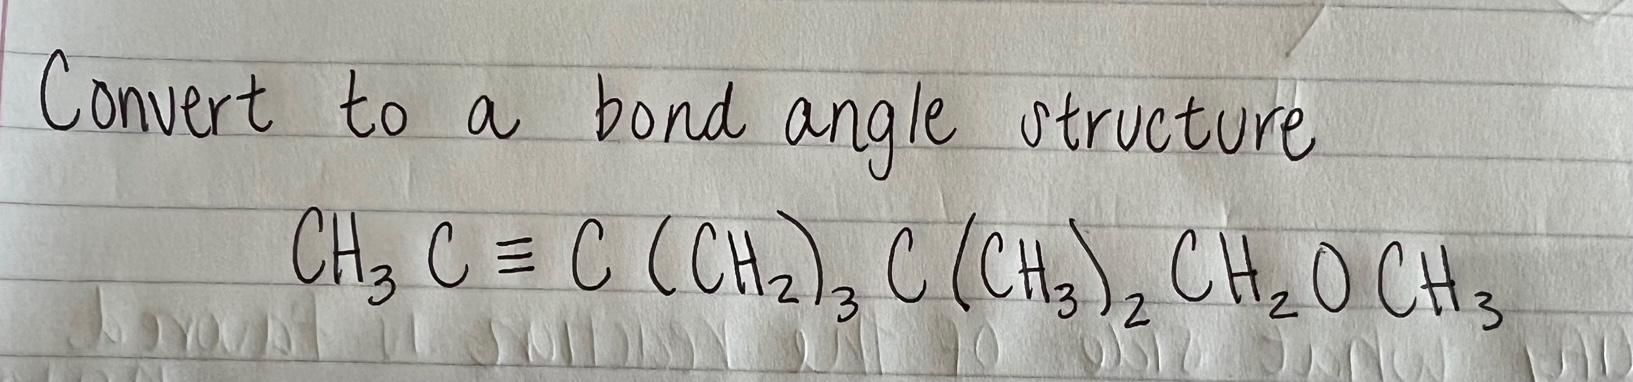 Convert to a bond angle structure
CH₃ C ≡ C (CH₂)₃ C (CH₃)₂ CH₂ O CH₃